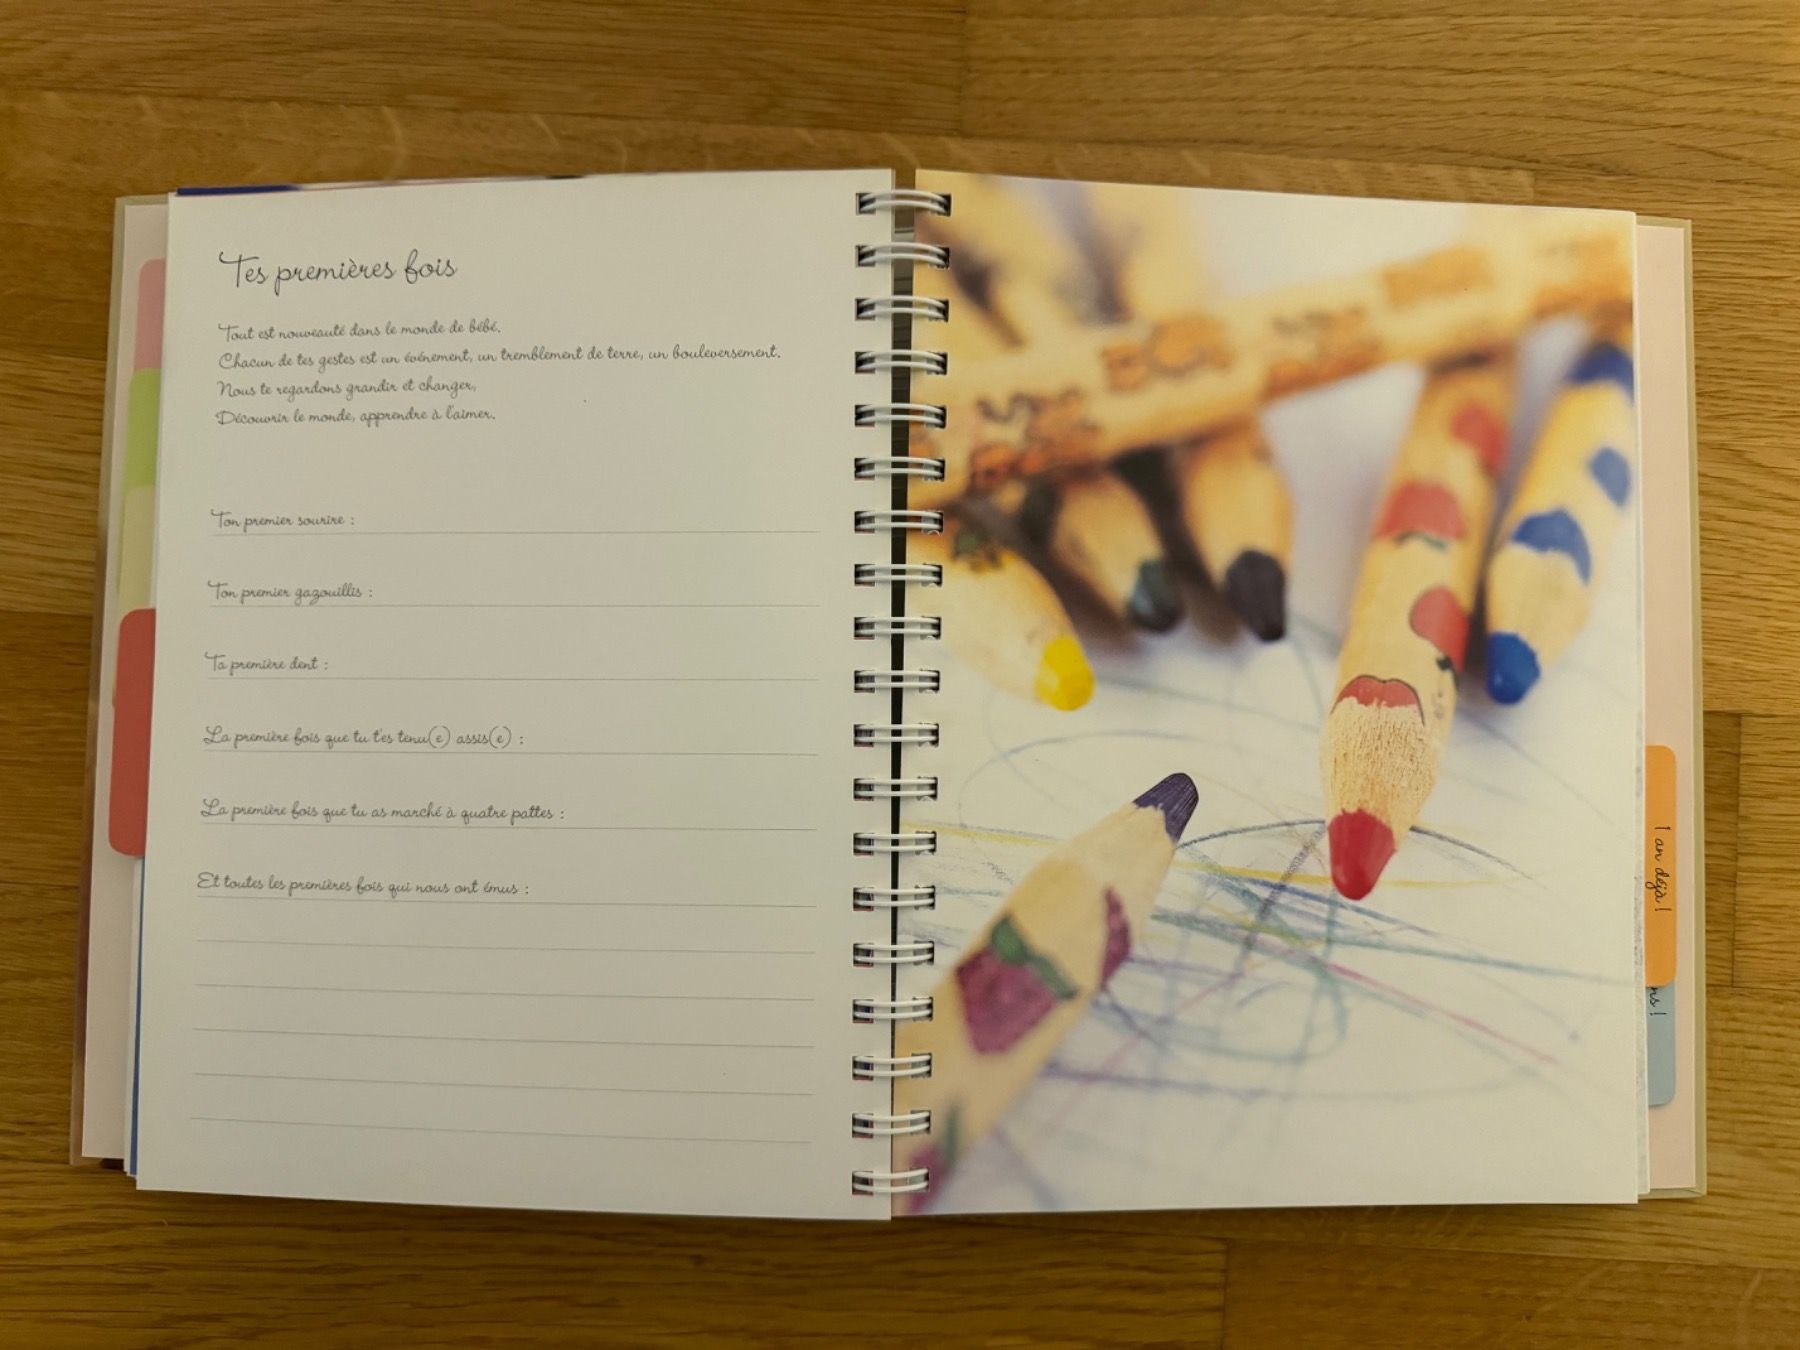 Tes premières fois
Tout est nouveauté dans le monde de bébé.
Chacun de tes gestes est un événement, un tremblement de terre, un bouleversement.
Nous te regardons grandir et changer,
Découvrir le monde, apprendre à l'aimer.
Ton premier sourire :
Ton premier gazouillis :
Ta première dent :
La première fois que tu t'es tenu(e) assis(e) :
La première fois que tu as marché à quatre pattes :
Et toutes les premières fois qui nous ont émus :
1 an déjà !
ns !